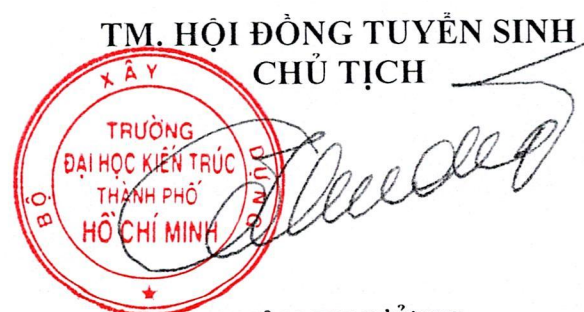 TM. HỘI ĐỒNG TUYỂN SINH
CHỦ TỊCH
BỘ XÂY DỰNG
TRƯỜNG
ĐẠI HỌC KIẾN TRÚC
THÀNH PHỐ
HỒ CHÍ MINH